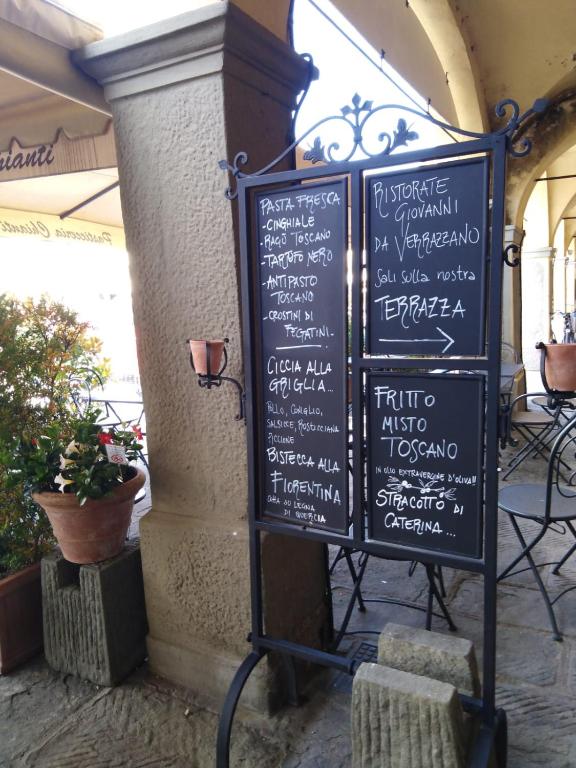 hianti
Pasticceria Chianti
PASTA FRESCA
- CINGHIALE
- RAGÙ TOSCANO
- TARTUFO NERO
- ANTIPASTO
TOSCANO
- CROSTINI DI
FEGATINI -
CICCIA ALLA
GRIGLIA...
POLLO, CONIGLIO,
SALSICCE, ROSTICCIANA
PICCIONE
BISTECCA ALLA
FIORENTINA
COTTA SU LEGNA
DI QUERCIA
RISTORATE
GIOVANNI
DA VERRAZZANO
Sali sulla nostra
TERRAZZA
FRITTO
MISTO
TOSCANO
IN OLIO EXTRAVERGINE D'OLIVA!!
STRACOTTO DI
CATERINA...